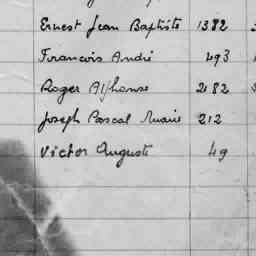 Ernest Jean Baptiste 1382
Francois André 493
Roger Alphonse 2182
Joseph Pascal Marie 212
Victor Auguste 49